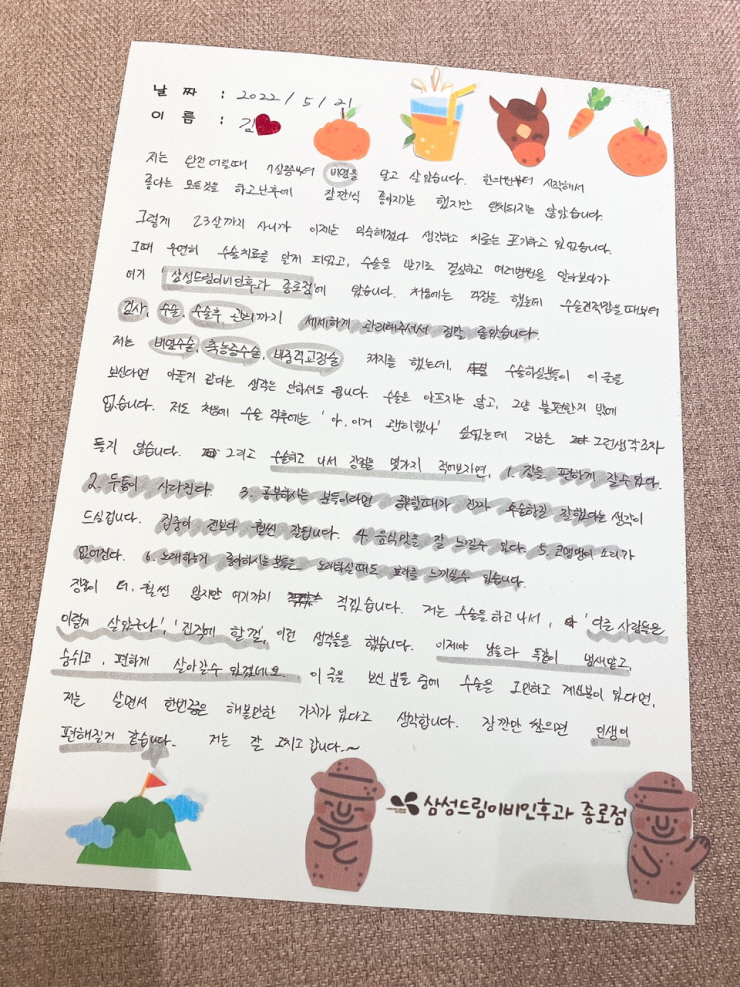 날 짜 : 2022/5/21
이 름 : 김
저는 완전 어릴때 7살쯤부터 비염을 달고 살았습니다. 한의원부터 시작해서
좋다는 모든것을 하고난후에 잠깐씩 좋아지기는 했지만 완치되지는 않았습니다.
그렇게 23살까지 사니까 이제는 익숙해졌다 생각하고 치료는 포기하고 있었습니다.
그때 우연히 수술치료를 알게 되었고, 수술을 받기로 결심하고 여러병원을 알아보다가
여기 '삼성드림이비인후과 종로점'에 왔습니다. 처음에는 걱정을 했는데 수술전적합을때부터
검사, 수술, 수술후 관리까지 세세하게 관리해주셔서 정말 좋았습니다.
저는 비염수술, 축농증수술, 비중격교정술 3가지를 했는데, 수술하실분들이 이 글을
보신다면 아픈거 같다는 생각은 안하셔도 됩니다. 수술은 아프지는 않고, 그냥 불편한거 밖에
없습니다. 저도 처음에 수술 직후에는 '아, 이거 괜히했나' 싶었는데 지금은 그런생각조차
들지 않습니다. 그리고 수술하고 나서 장점을 몇가지 적어보자면, 1. 잠을 편하게 잘수있다.
2. 두통이 사라진다. 3. 공부하시는 분들이라면 공부할때가 진짜 수술하길 잘했다는 생각이
드실겁니다. 집중이 전보다 훨씬 잘됩니다. 4. 음식맛을 잘 느낄수 있다. 5. 코맹맹이 소리가
없어진다. 6. 노래하는거 좋아하시는 분들은 노래하실때도 효과를 느끼실수 있습니다.
장점이 더, 훨씬 많지만 여기까지 적겠습니다. 저는 수술을 하고 나서, '여름 사람들은
이렇게 살았구나', '진작에 할껄', 이런 생각들을 했습니다. 이제야 남들과 똑같이 냄새맡고,
숨쉬고, 편하게 살아갈수 있겠네요. 이 글을 보신 분들 중에 수술을 고민하고 계신분이 있다면,
저는 살면서 한번쯤은 해볼만한 가치가 있다고 생각합니다. 잠깐만 참으면 인생이
편해질거 같습니다. 저는 잘 고치고 갑니다.~
삼성드림이비인후과 종로점